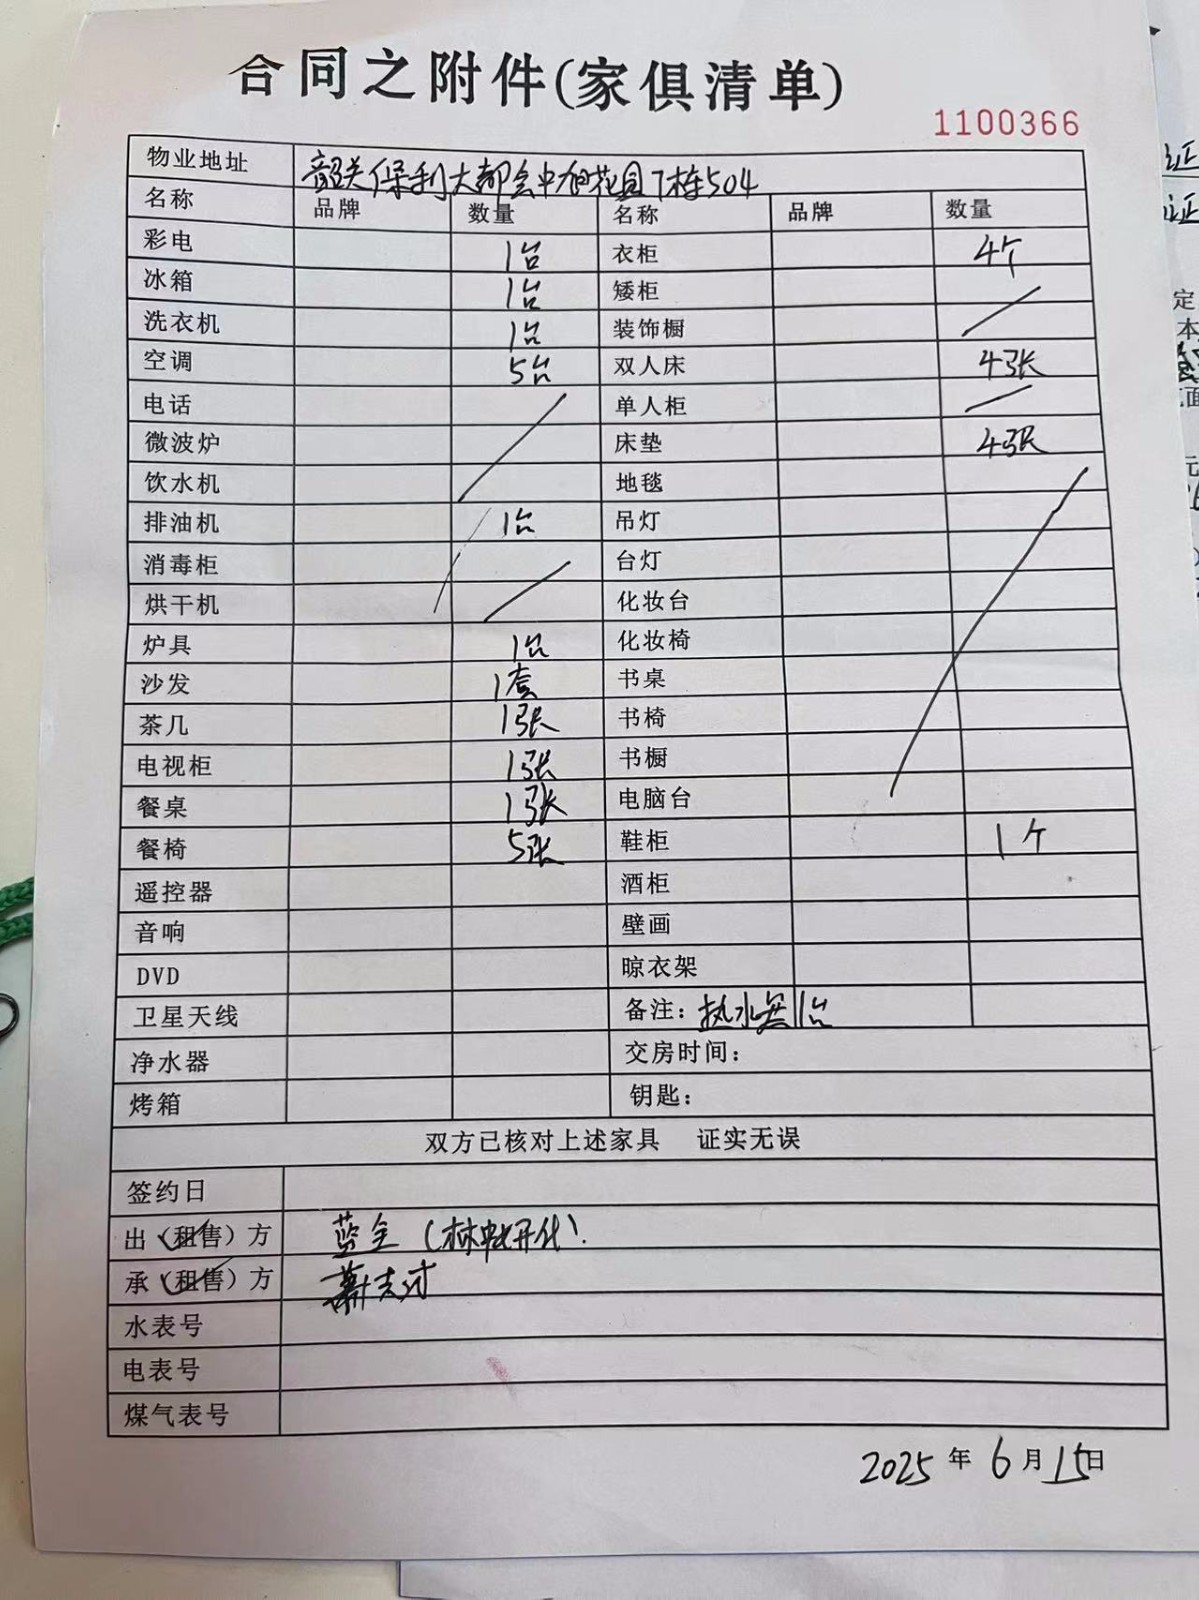 合同之附件(家俱清单)
1100366
物业地址 韶关保利大都会中旭花园7栋504
名称 品牌 数量 名称 品牌 数量
彩电 1台 衣柜 4个
冰箱 1台 矮柜
洗衣机 1台 装饰橱
空调 5台 双人床 4张
电话 单人柜
微波炉 床垫 4张
饮水机 地毯
排油机 1台 吊灯
消毒柜 台灯
烘干机 化妆台
炉具 1台 化妆椅
沙发 1套 书桌
茶几 1张 书椅
电视柜 1张 书橱
餐桌 1张 电脑台
餐椅 5张 鞋柜 1个
遥控器 酒柜
音响 壁画
DVD 晾衣架
卫星天线 备注：热水器1台
净水器 交房时间：
烤箱 钥匙：
双方已核对上述家具 证实无误
签约日
出（租售）方
承（租售）方
水表号
电表号
煤气表号
2025年6月15日
证
证
定
本
面
元